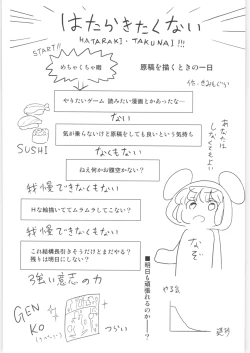 はたらきたくない
HATARAKI・TAKUNAI!!!
START!!
めちゃくちゃ眠
原稿を描くときの一日
やりたいゲーム 読みたい漫画とかあったな―
ない
気が乗らないけど原稿をしても良いという気持ち
なくもない
SUSHI
あなたは
しなくてもよい
ねえ何かお腹空かない?
我慢できなくもない
Hな絵描いててムラムラしてこない?
我慢できなくもない
これ結構長引きそうだけどまだやる?
残りは明日にしない?
強い意志の力
なぞ
■明日も頑張れるのか――?
GEN
KO
つらい
やる気
時間